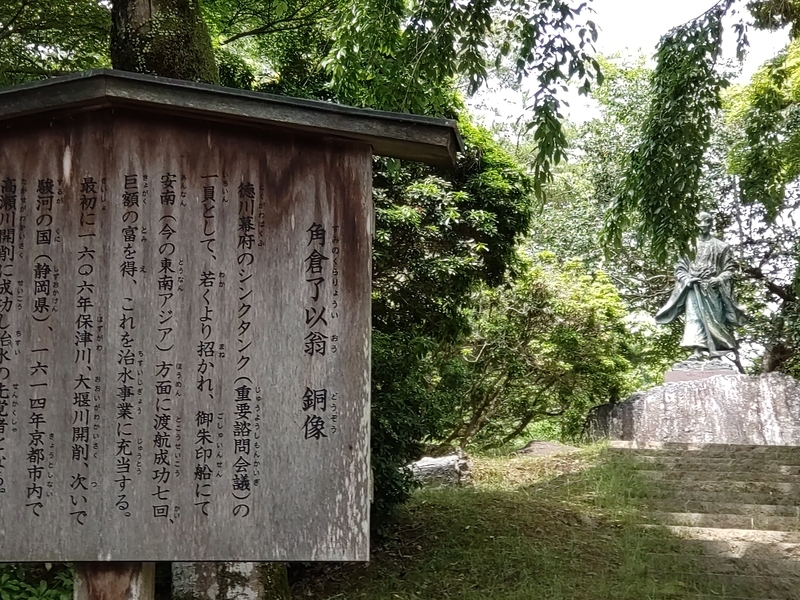 角倉了以翁 銅像
徳川幕府のシンクタンク(重要諮問会議)の
一員として、若くより招かれ、御朱印船にて
安南(今の東南アジア)方面に渡航成功七回、
巨額の富を得、これを治水事業に充当する。
最初に一六〇六年保津川、大堰川開削、次いで
駿河の国(静岡県)、一六一四年京都市内で
高瀬川開削に成功し治水の先覚者となる。